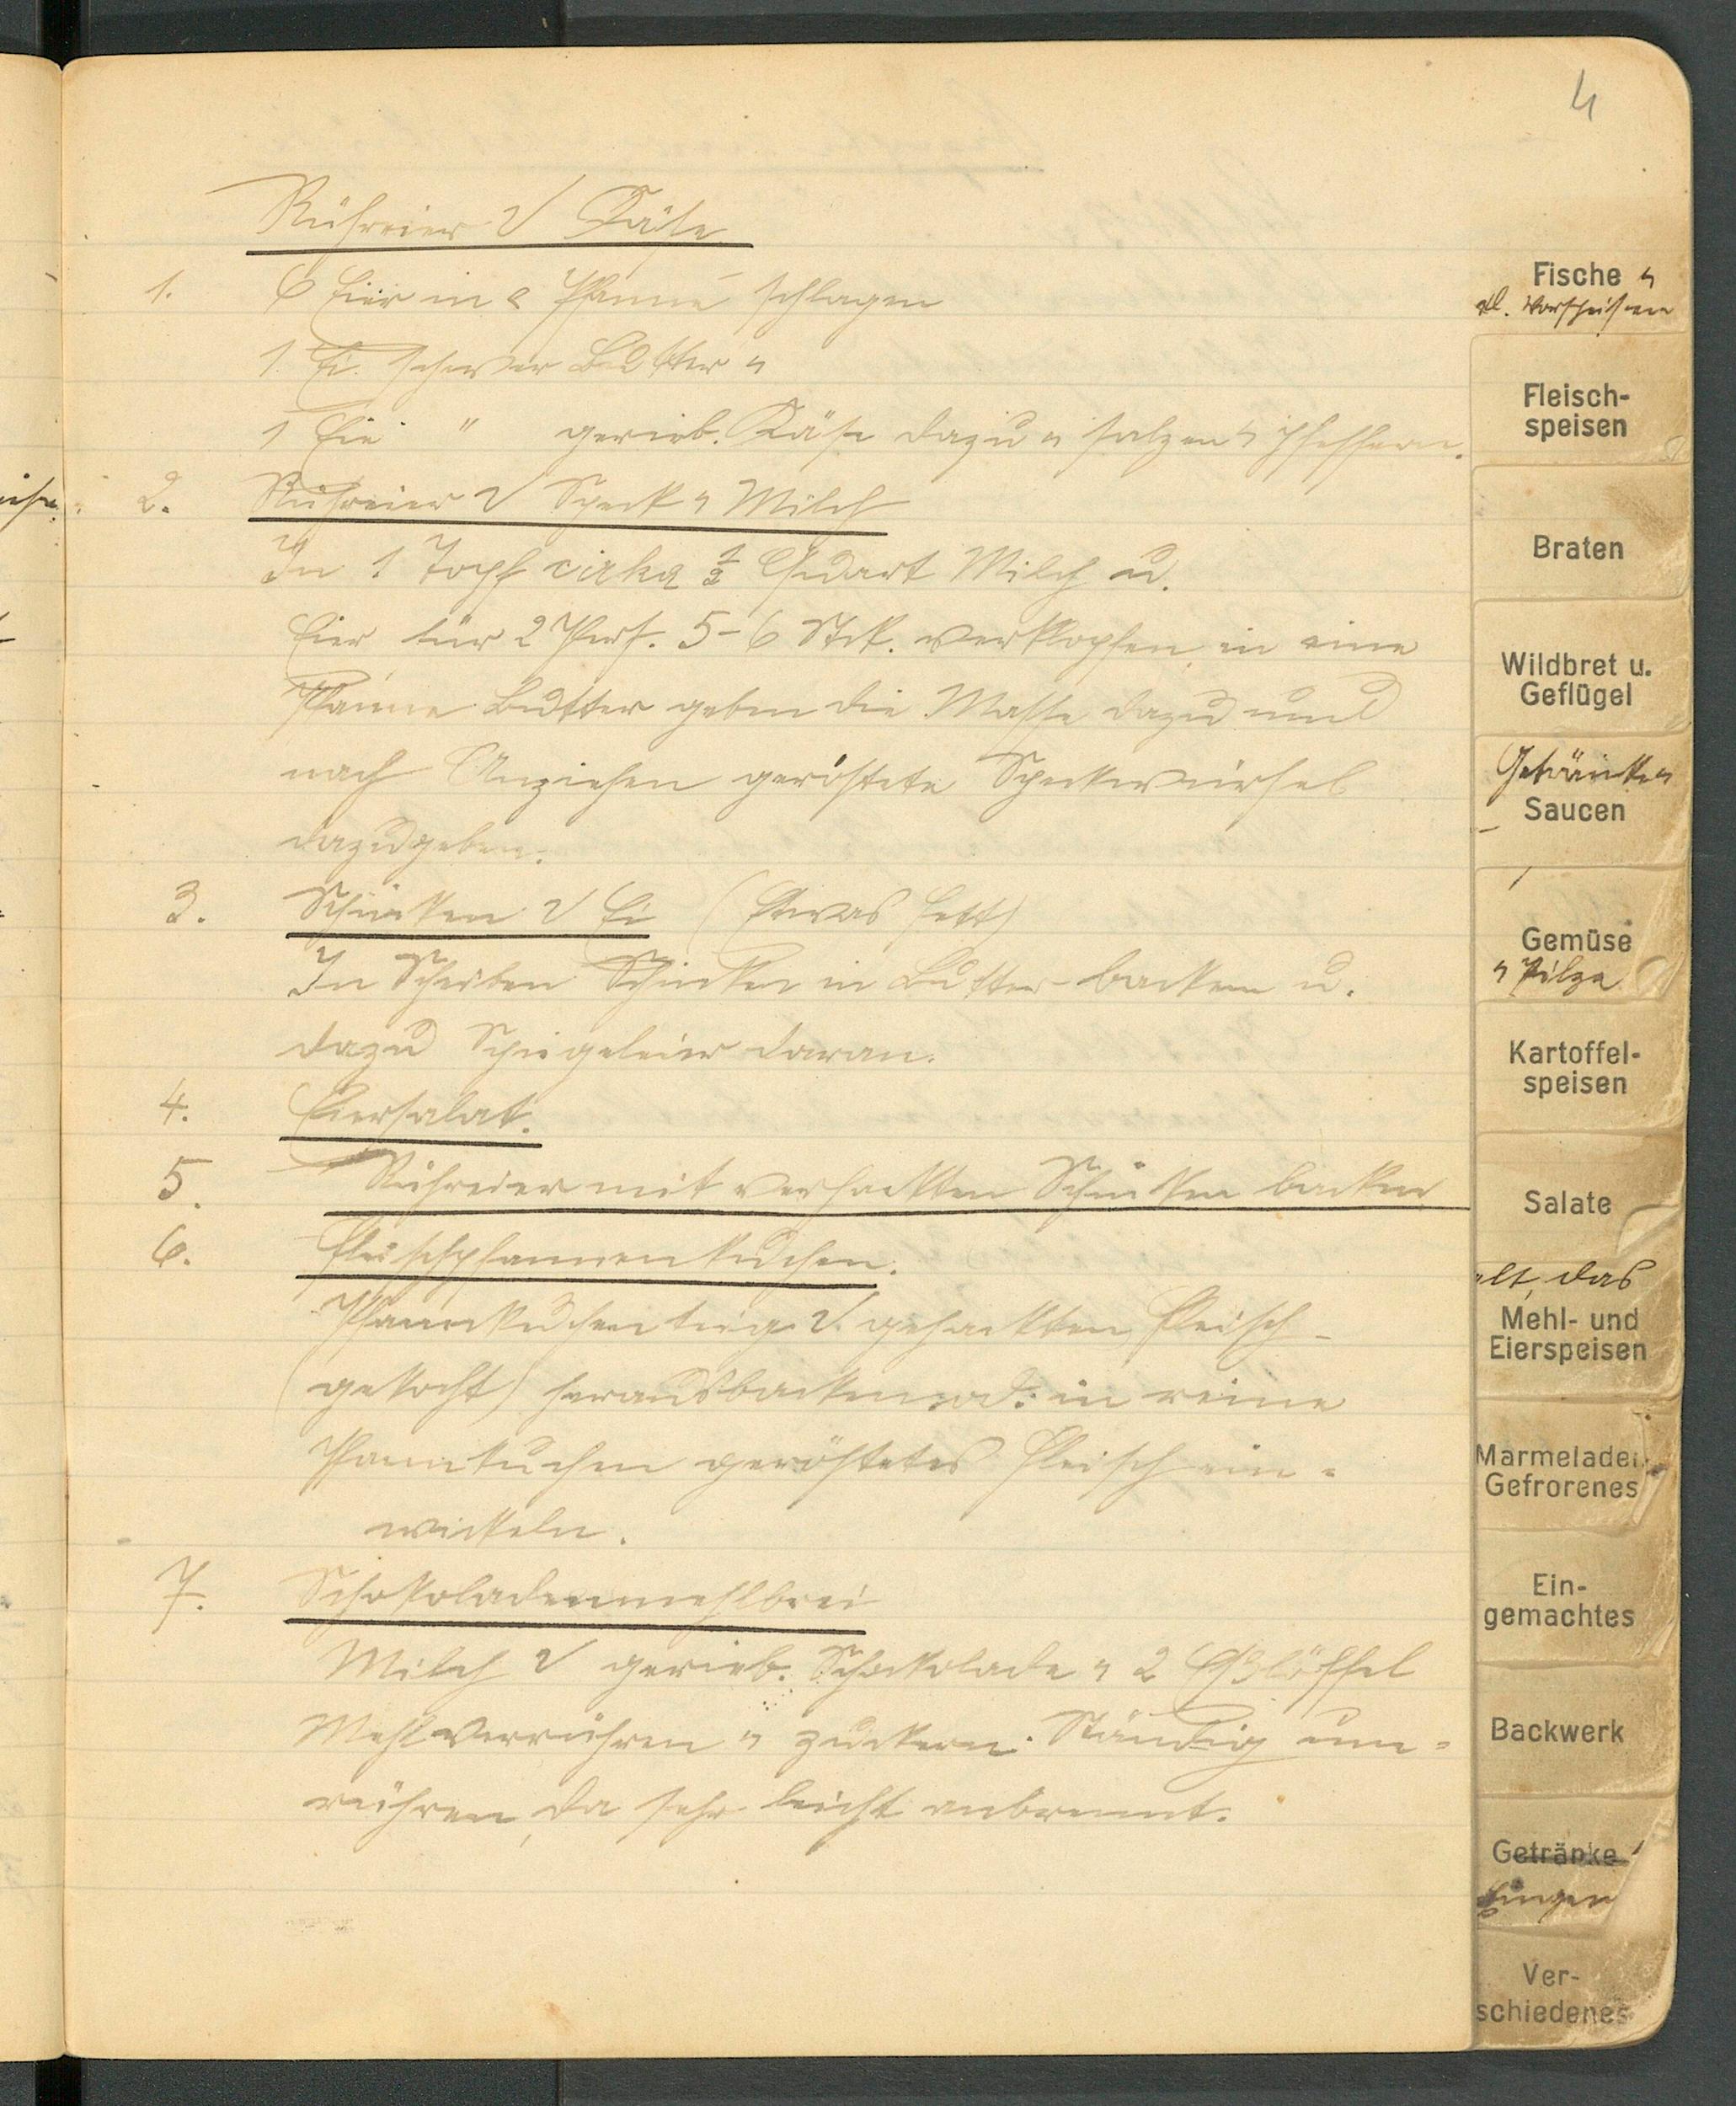 4
Rühreier v Käse
1. 6 Eier in e Pfanne schlagen
1. Ei. schwer Butter u
1 Ei " gerieb. Käse dazu u salzen u pfeffern.
2. Rühreier v Speck u Milch
In 1 Topf cirka ½ Quart Milch u.
Eier für 2 Pers. 5-6 Stck. verklopfen, in eine
Pfanne Butter geben die Masse dazu und
nach Anziehen geröstete Speckwürfel
dazugeben.
3. Schinken v Ei (Etwas fett)
In Scheiben Schinken in Butter backen u.
dazu Spiegeleier daran.
4. Eiersalat.
5. Rühreier mit verhackten Schinken backen
6. Fleischpfannenkuchen.
Pfannkuchenteig v. gehackten Fleisch-
(gekocht) herausbacken, od. in reine
Pfannkuchen geröstetes Fleisch ein-
wickeln.
7. Schokoladenmehlbrei
Milch v gerieb. Schokolade u 2 Eßlöffel
Mehl verrühren u zuckern. Ständig um-
rühren, da sehr leicht anbrennt.
Fische u
kl. Vorspeisen
Fleisch-
speisen
Braten
Wildbret u.
Geflügel
Getränke u
Saucen
Gemüse
u Pilze
Kartoffel-
speisen
Salate
alt, das
Mehl- und
Eierspeisen
Marmeladen
Gefrorenes
Ein-
gemachtes
Backwerk
Getränke
Ver-
schiedenes